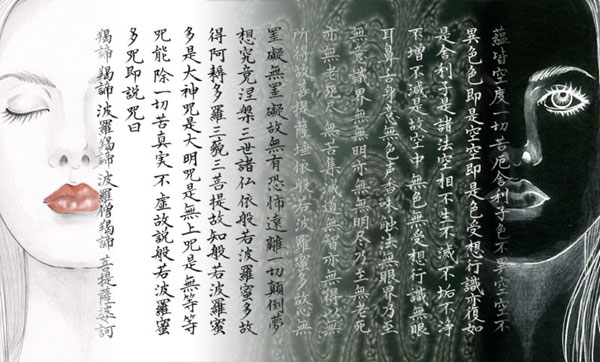 蘊皆空度一切苦厄舎利子色不異空空不
異色色即是空空即是色受想行識亦復如
是舎利子是諸法空相不生不滅不垢不浄
不増不減是故空中無色無受想行識無眼
耳鼻舌身意無色声香味触法無眼界乃至
無意識界無無明亦無無明尽乃至無老死
亦無老死尽無苦集滅道無智亦無得以無
所得故菩提薩埵依般若波羅蜜多故心無
罣礙無罣礙故無有恐怖遠離一切顛倒夢
想究竟涅槃三世諸仏依般若波羅蜜多故
得阿耨多羅三藐三菩提故知般若波羅蜜
多是大神咒是大明咒是無上咒是無等等
咒能除一切苦真実不虚故説般若波羅蜜
多咒即説咒曰
羯諦 羯諦 波羅羯諦 波羅僧羯諦 菩提薩婆訶